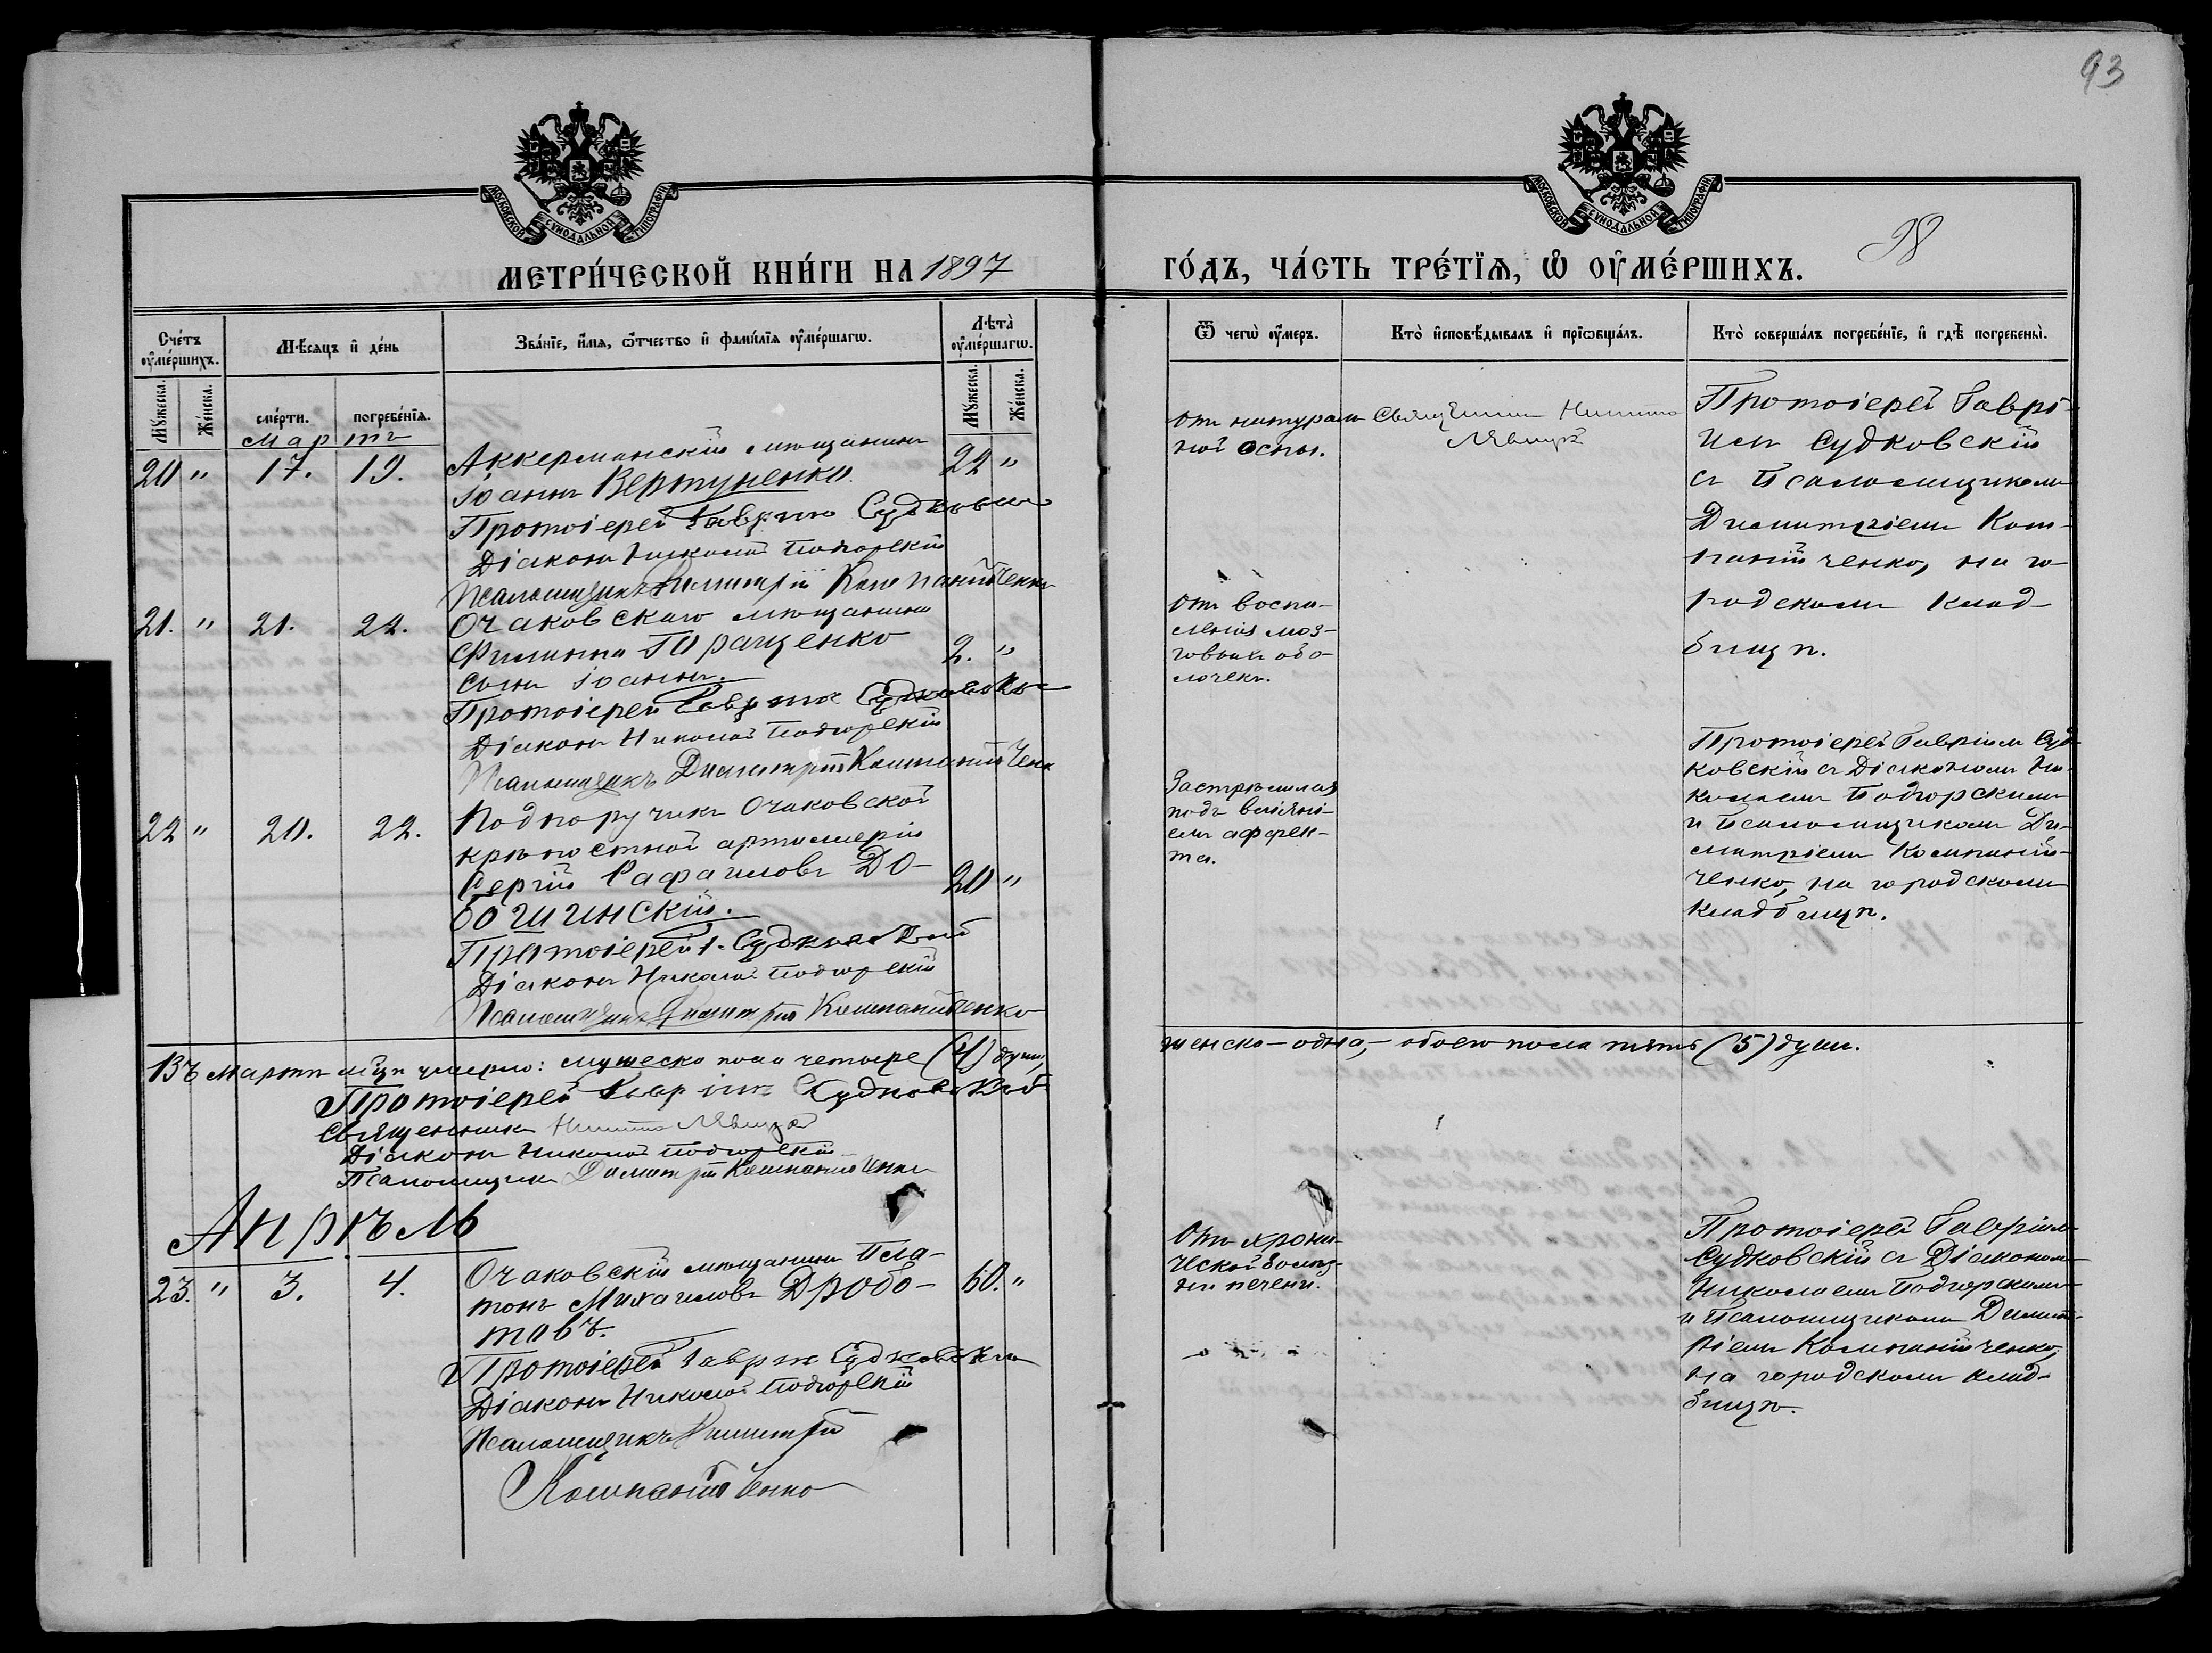 93
МОСКОВСКОЙ СѴНОДАЛЬНОЙ ТИПОГРАФІИ
МОСКОВСКОЙ СѴНОДАЛЬНОЙ ТИПОГРАФІИ
98
МЕТРИ́ЧЕСКОЙ КНИ́ГИ НА 1897
ГО́ДЪ, ЧА́СТЬ ТРЕ́ТЇѦ, Ѡ҆ ОУ҆МЕ́РШИХЪ.
Сче́тъ оу҆ме́ршихъ.
Мѣ́сѧцъ и҆ де́нь
Зва́нїе, и҆́мѧ, ѻ҆́тчество и҆ фами́лїѧ оу҆ме́ршагѡ.
Лѣта̀ оу҆ме́ршагѡ.
Ѿ чегѡ̀ оу҆́меръ.
Кто̀ и҆сповѣ́дывалъ и҆ прїѡбща́лъ.
Кто̀ соверша́лъ погребе́нїе, и҆ гдѣ̀ погребены̀.
Мꙋ́жеска.
Же́нска.
сме́рти.
погребе́нїѧ.
Мꙋ́жеска.
Же́нска.
Мартъ
20 " 17. 19.
Аккерманскій мѣщанинъ
Іоаннъ Вертуненко.
22 "
Протоіерей Гавріилъ Судковскій
Діаконъ Николай Подгорскій
Псаломщикъ Димитрій Компанійченко
От натураль
ной оспы.
Священникъ Никита
Протоіерей Гаврі-
илъ Судковскій
съ Псаломщикомъ
Димитріемъ Ком-
панійченко, на го-
родскомъ клад-
бищѣ.
21. " 21. 22.
Очаковскаго мѣщанина
Филиппа Торащенко
сынъ Іоаннъ.
2. "
Протоіерей Гавріилъ Судковскій
Діаконъ Николай Подгорскій
Псаломщикъ Димитрій Компанійченко
От воспа-
ленія моз-
говыхъ обо-
лочекъ.
22 " 20. 22.
Подпоручикъ Очаковской
крѣпостной артиллеріи
Сергій Рафаиловъ До-
бошинскій.
20 "
Протоіерей Г. Судковскій
Діаконъ Николай Подгорскій
Псаломщикъ Димитрій Компанійченко
Застрѣлился
подъ вліяні-
емъ аффек-
та.
Протоіерей Гавріилъ Суд-
ковскій съ Діакономъ Ни-
колаемъ Подгорскимъ
и Псаломщикомъ Ди-
митріемъ Компаній-
ченко, на городскомъ
кладбищѣ.
Въ мартѣ мцѣ умерло: мужеска пола четыре (4) души,
женска – одна, – обоего пола пять (5) душ.
Протоіерей Гавріилъ Судковскій
Священникъ Никита
Діаконъ Николай Подгорскій
Псаломщикъ Димитрій Компанійченко
Апрѣль
23. " 3. 4.
Очаковскій мѣщанинъ Пла-
тонъ Михаиловъ Дробо-
товъ.
60. "
Протоіерей Гавріилъ Судковскій
Діаконъ Николай Подгорскій
Псаломщикъ Димитрій
Компанійченко
От хрони-
ческой болѣз-
ни печени.
Протоіерей Гавріилъ
Судковскій съ Діакономъ
Николаемъ Подгорскимъ
и Псаломщикомъ Димит-
ріемъ Компанійченко,
на городскомъ клад-
бищѣ.